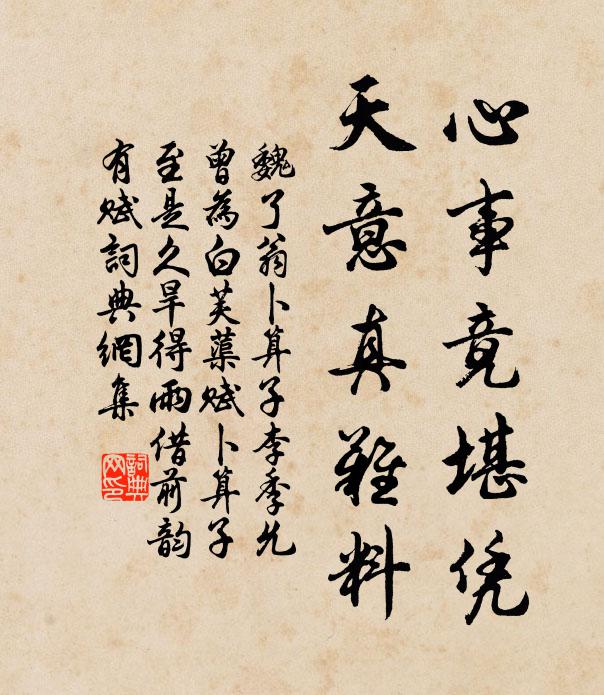 心事竟堪凭
天意真難料
魏了翁卜算子李季允
曾為白芙蕖賦卜算子
至是久旱得雨借前韵
有賦詞典網集
詞典網印